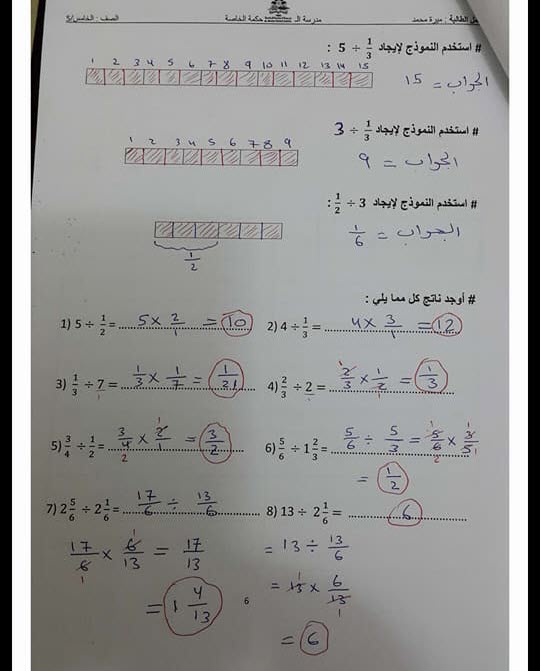 الطالبة : ميرة محمد مدرسة الـ حكمة الخاصة الصف : الخامس/5
# استخدم النموذج لإيجاد 5 ÷ 1/3 :
1 2 3 4 5 6 7 8 9 10 11 12 13 14 15
الجواب = 15
# استخدم النموذج لإيجاد 3 ÷ 1/3
1 2 3 4 5 6 7 8 9
الجواب = 9
# استخدم النموذج لإيجاد 1/2 ÷ 3 :
الجواب = 1/6
1/2
# أوجد ناتج كل مما يلي :
1) 5 ÷ 1/2 = 5 × 2/1 = 10 2) 4 ÷ 1/3 = 4 × 3/1 = 12
3) 1/3 ÷ 7 = 1/3 × 1/7 = 1/21 4) 2/3 ÷ 2 = 2/3 × 1/2 = 1/3
5) 3/4 ÷ 1/2 = 3/4 × 2/1 = 3/2 6) 5/6 ÷ 1 2/3 = 5/6 ÷ 5/3 = 5/6 × 3/5
= 1/2
7) 2 5/6 ÷ 2 1/6 = 17/6 ÷ 13/6 8) 13 ÷ 2 1/6 = 6
17/6 × 6/13 = 17/13 = 13 ÷ 13/6
= 1 4/13 = 13 × 6/13
= 6
6